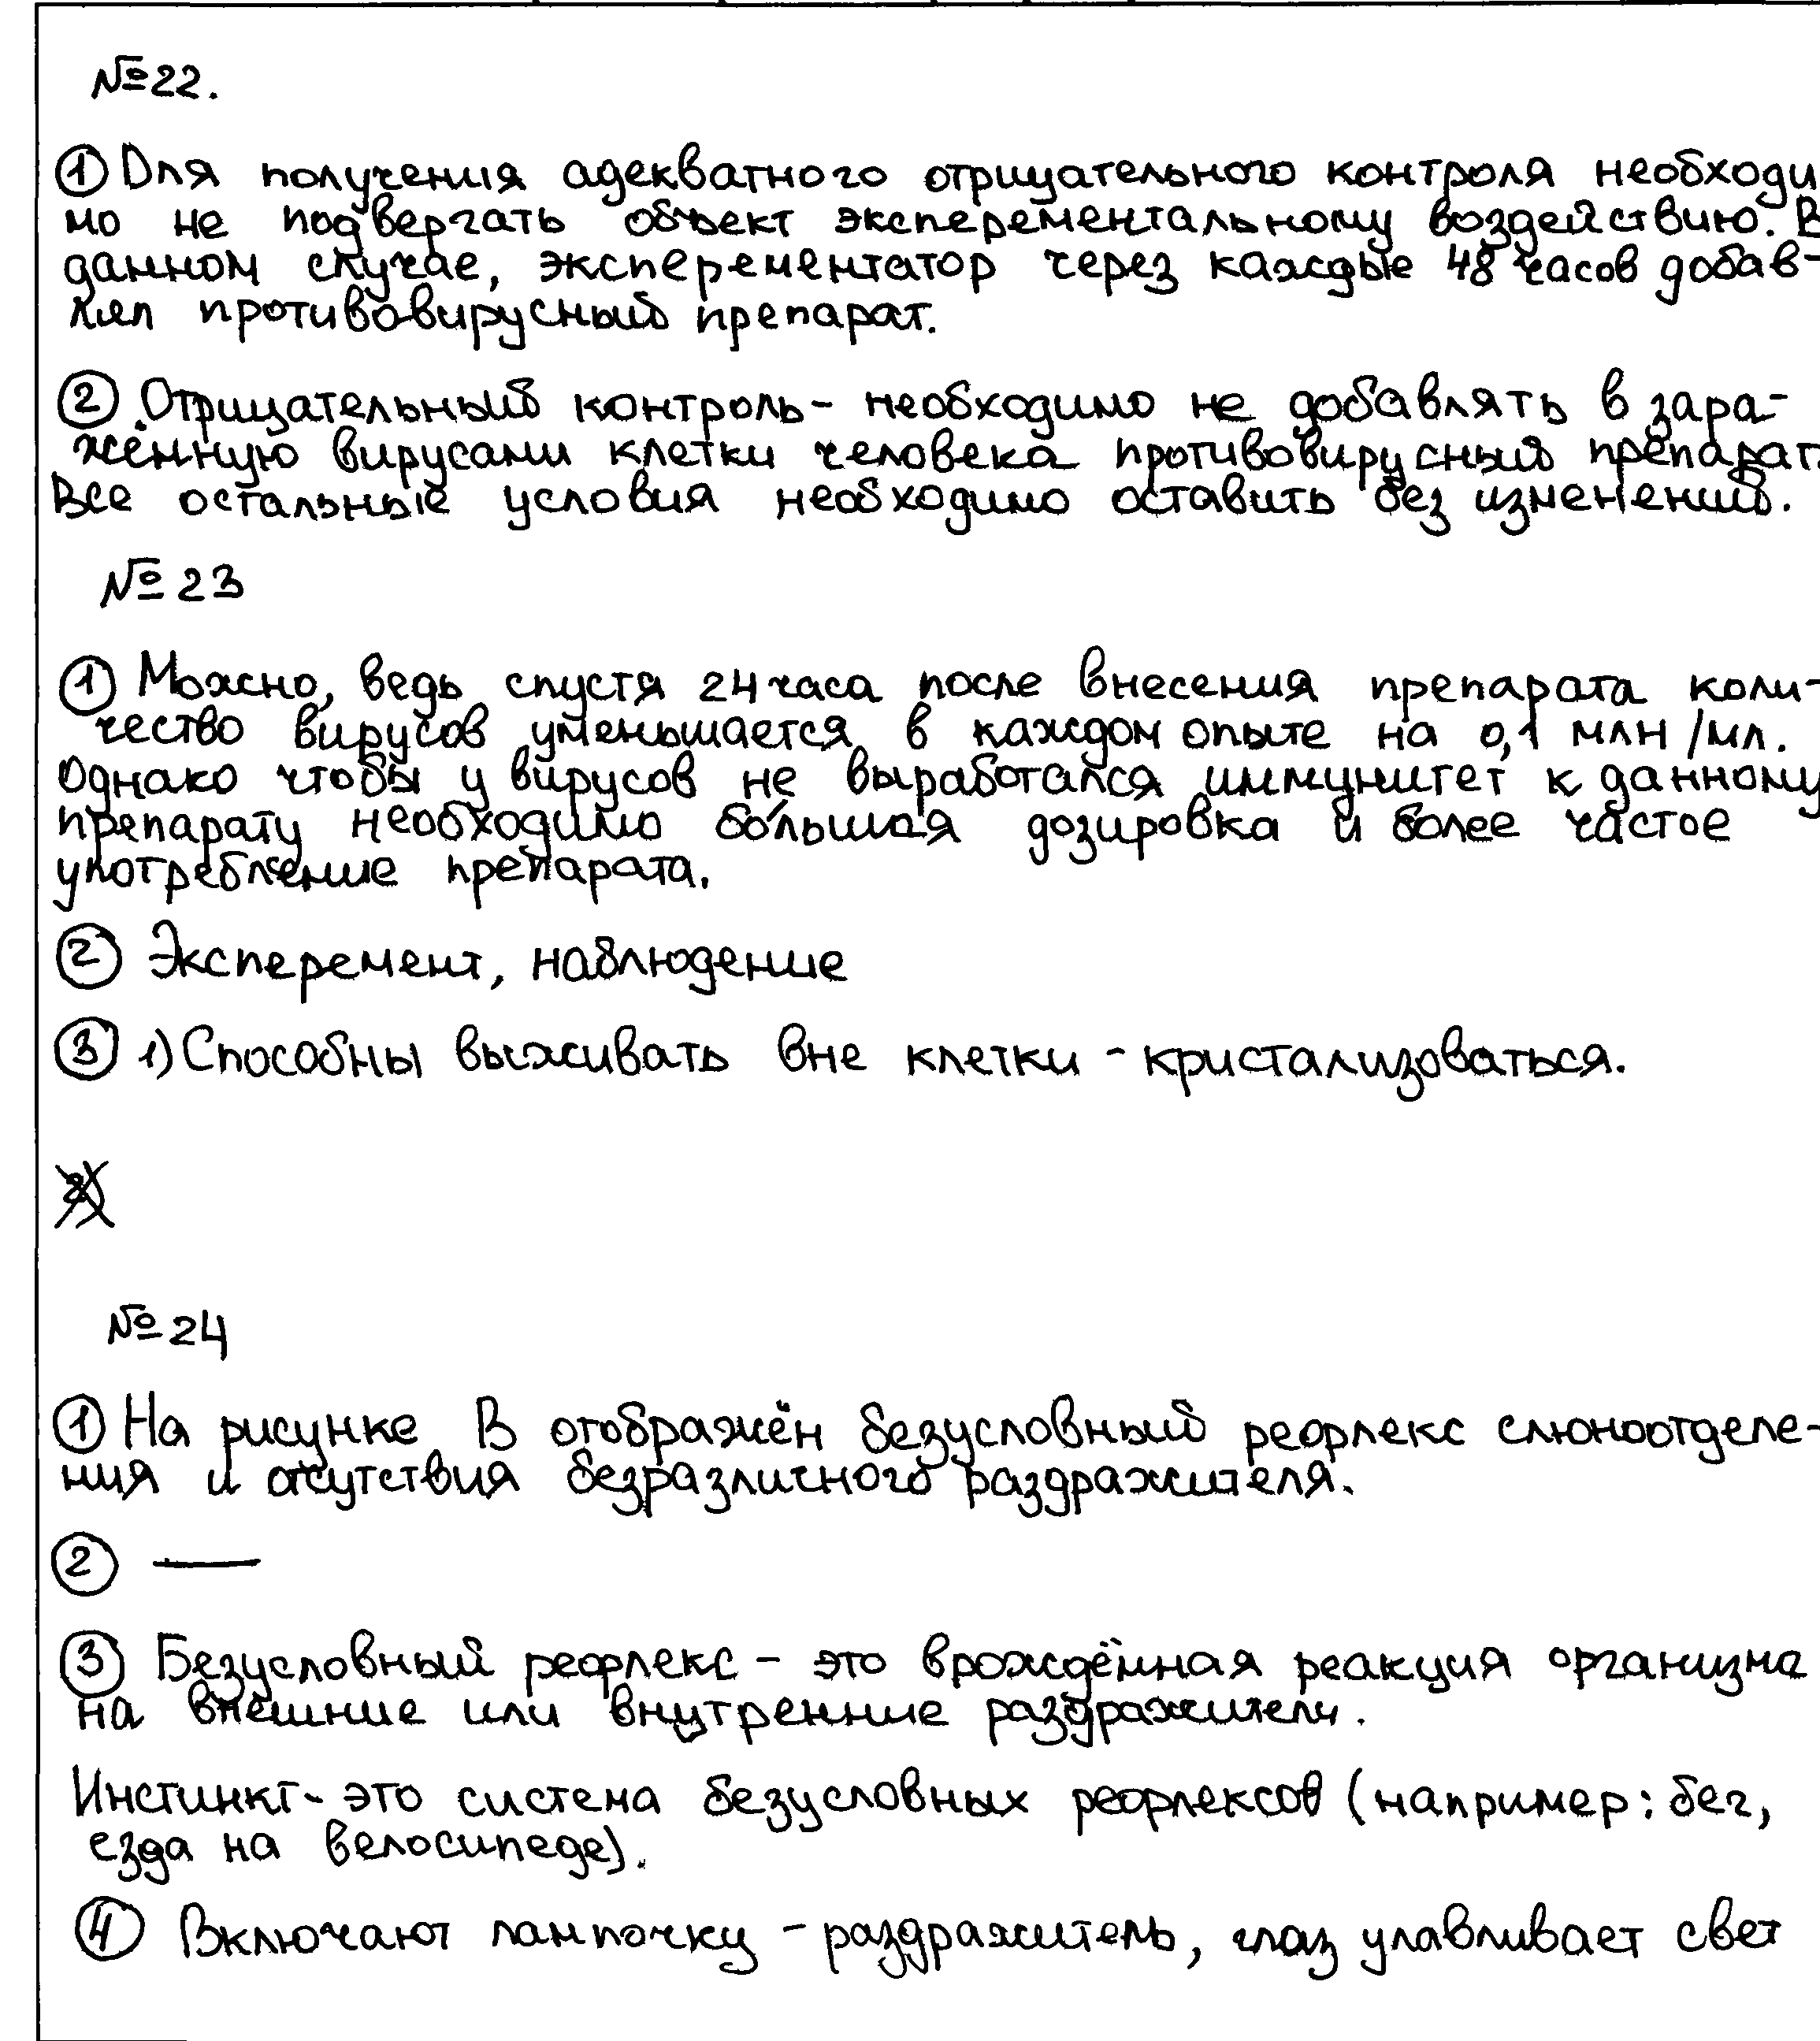 №22.
① Для получения адекватного отрицательного контроля необходи
мо не подвергать объект эксперементальному воздействию. В
данном случае, эксперементатор через каждые 48 часов добав-
лял противовирусный препарат.
② Отрицательный контроль - необходимо не добавлять в зара-
жённую вирусами клетки человека противовирусный препарат.
Все остальные условия необходимо оставить без изменений.
№ 23
① Можно, ведь спустя 24 часа после внесения препарата коли-
чество вирусов уменьшается в каждом опыте на 0,1 млн/мл.
Однако чтобы у вирусов не выработался иммунитет к данному
препарату необходимо бо́льшая дозировка и более частое
употребление препарата.
② Эксперемент, наблюдение
③ 1) Способны выживать вне клетки - кристализоваться.
№ 24
① На рисунке В отображён безусловный рефлекс слюноотделе-
ния и отсутствия безразличного раздражителя.
② —
③ Безусловный рефлекс - это врождённая реакция организма
на внешние или внутренние раздражители.
Инстинкт - это система безусловных рефлексов (например: бег,
езда на велосипеде).
④ Включают лампочку - раздражитель, глаз улавливает свет